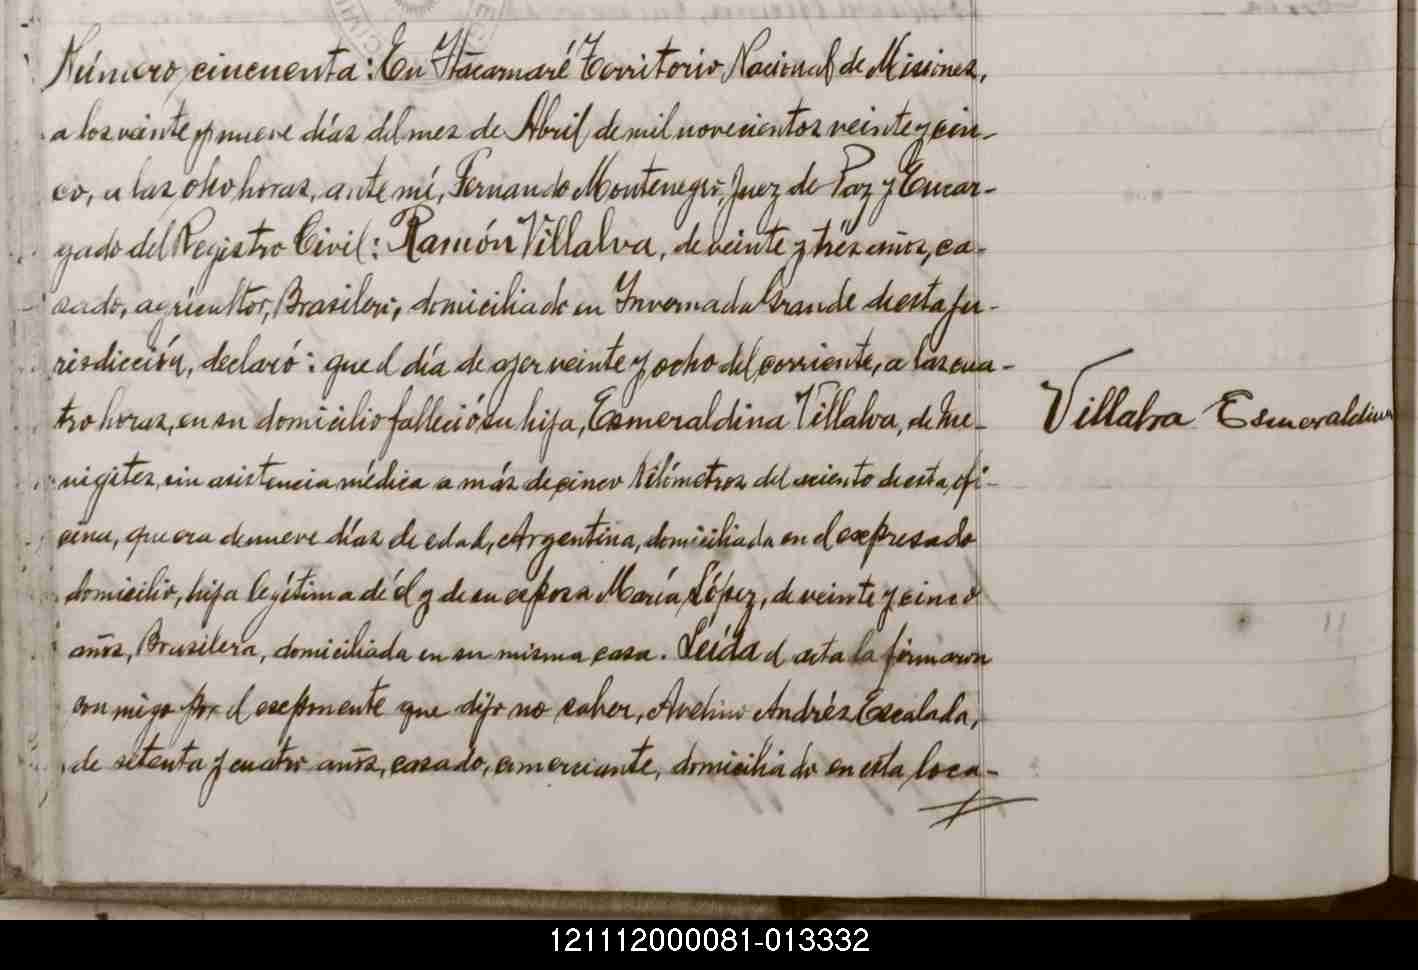 Número cincuenta: En Itacarnaré Territorio Nacional de Misiones,
a los veinte y nueve días del mes de Abril de mil novecientos veinte y cin-
co, a las ocho horas, ante mí, Fernando Montenegro, Juez de Paz y Encar-
gado del Registro Civil: Ramón Villalva, de veinte y trés años, ca-
sado, agricultor, Brasilero, domiciliado en Invernada Grande de esta ju-
risdicción, declaró: que el día de ayer veinte y ocho del corriente, a las cua-
tro horas, en su domicilio falleció su hija, Esmeraldina Villalva, de Me-
nigites, sin asistencia médica a más de cinco kilómetros del asiento de esta ofi-
cina, que era de nueve días de edad, Argentina, domiciliada en el expresado
domicilio, hija legítima de él y de su esposa María López, de veinte y cinco
años, Brasilera, domiciliada en su misma casa. Leída el acta la firmaron
con migo por el exponente que dijo no saber, Avelino Andrés Escalada,
de setenta y cuatro años, casado, comerciante, domiciliado en esta loca-
Villalva Esmeraldina
121112000081-013332